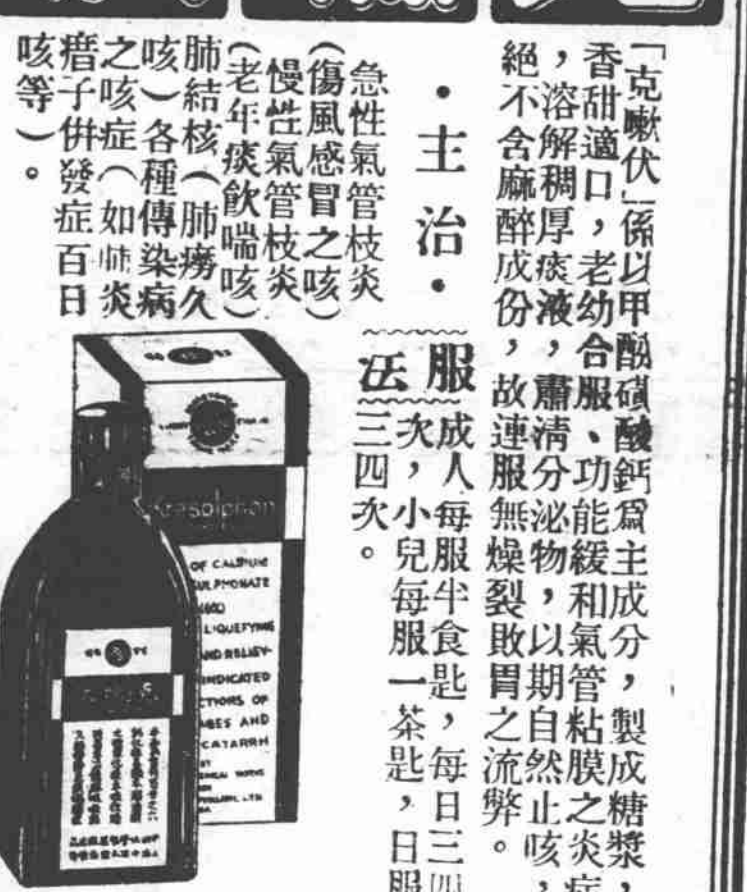 「克嗽伏」係以甲酚磺酸鈣爲主成分，製成糖漿，
香甜適口，老幼合服、功能緩和氣管粘膜之炎症
，溶解稠厚痰液，肅清分泌物，以期自然止咳，
絕不含麻醉成份，故連服無燥裂敗胃之流弊。
·主治·
急性氣管枝炎
（傷風感冒之咳）
慢性氣管枝炎
（老年痰飲喘咳）
肺結核（肺癆久
咳）各種傳染病
之咳症（如肺炎
痦子倂發症百日
咳等）。
服法
成人每服半食匙，每日三四
次，小兒每服一茶匙，日服
三四次。
Kresolphon
OF CALCIUM
SULPHONATE
LIQUEFYING
AND RELIEV-
INDICATED
OF
AND
CATARRH